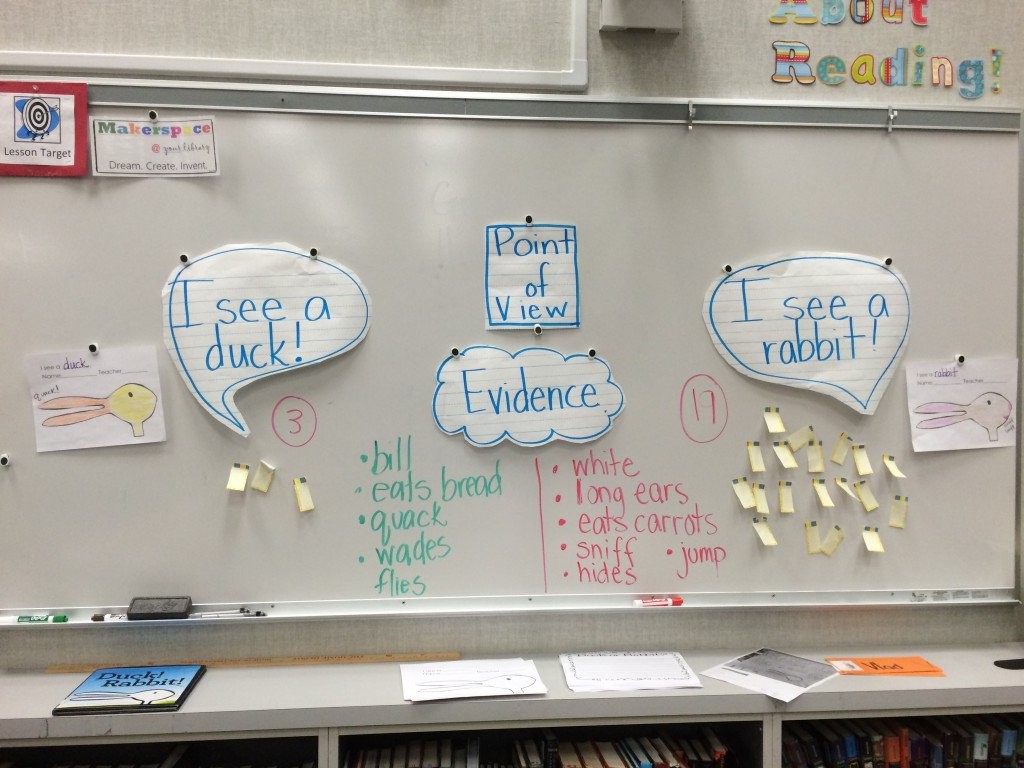 About
Reading!
Lesson Target
Makerspace
@ your library
Dream. Create. Invent.
Point
of
View
I see a
duck!
Evidence
I see a
rabbit!
I see a duck
Name Teacher
quack!
I see a rabbit
Name Teacher
3
17
• bill
• eats bread
• quack
• wades
flies
• white
• long ears
• eats carrots
• sniff • jump
• hides
Duck!
Rabbit!
Vlad